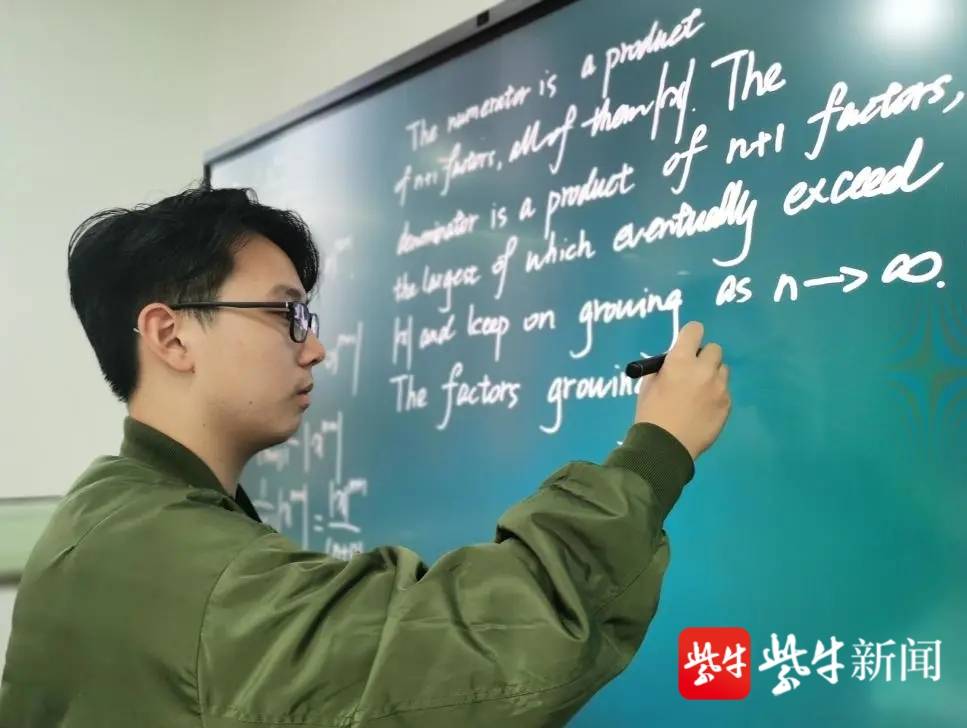 The numerator is a product
of n+1 factors, all of them |x|. The
denominator is a product of n+1 factors,
the largest of which eventually exceed
|x| and keep on growing as n→∞.
The factors growing
紫牛 紫牛新闻